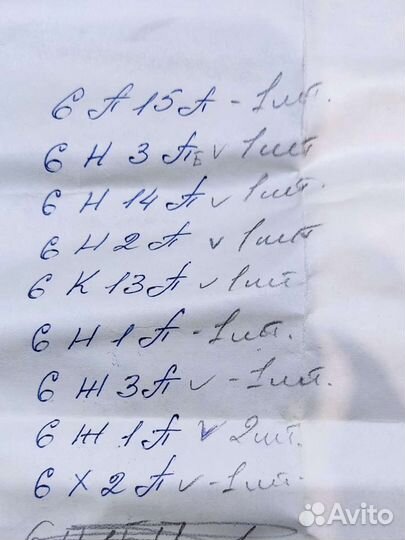 6 П 15 П - 1 шт.
6 Н 3 ПЕ v 1 шт
6 Н 14 П v 1 шт.
6 Н 2 П v 1 шт
6 К 13 П v 1 шт
6 Н 1 П - 1 шт.
6 Ж 3 П v - 1 шт.
6 Ж 1 П v 2 шт.
6 Х 2 П v - 1 шт.
Avito